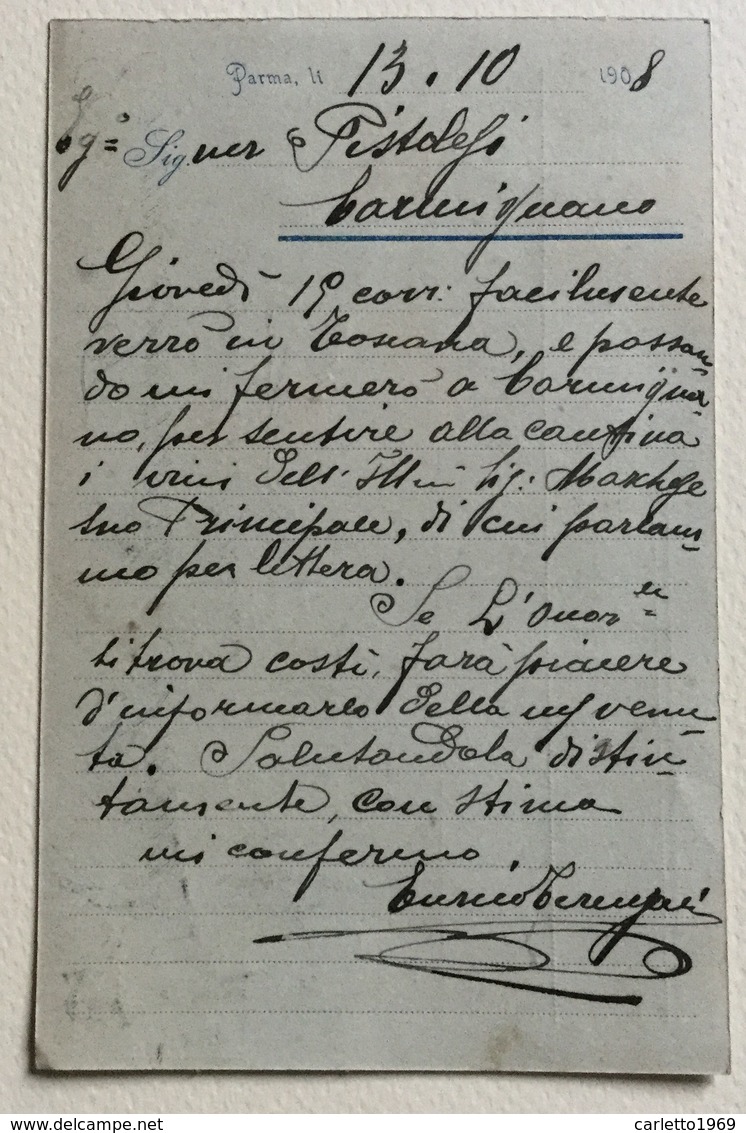 Parma, li 13.10 1908
Sig. nor Pistolesi
Carmignano
Giovedì 15 corr: facilmente
verrò in Toscana, e passan-
do mi fermerò a Carmigna-
no, per sentire alla cantina
i vini dell'Ill.mo Sig: Marchese
Suo Principale, di cui parlam-
mo per lettera.
Se L'Onor.
si trova costì, farà piacere
d'informarlo della mia venu-
ta. Salutandola distin-
tamente, con stima
mi confermo.
Enrico
www.delcampe.net
carletto1969